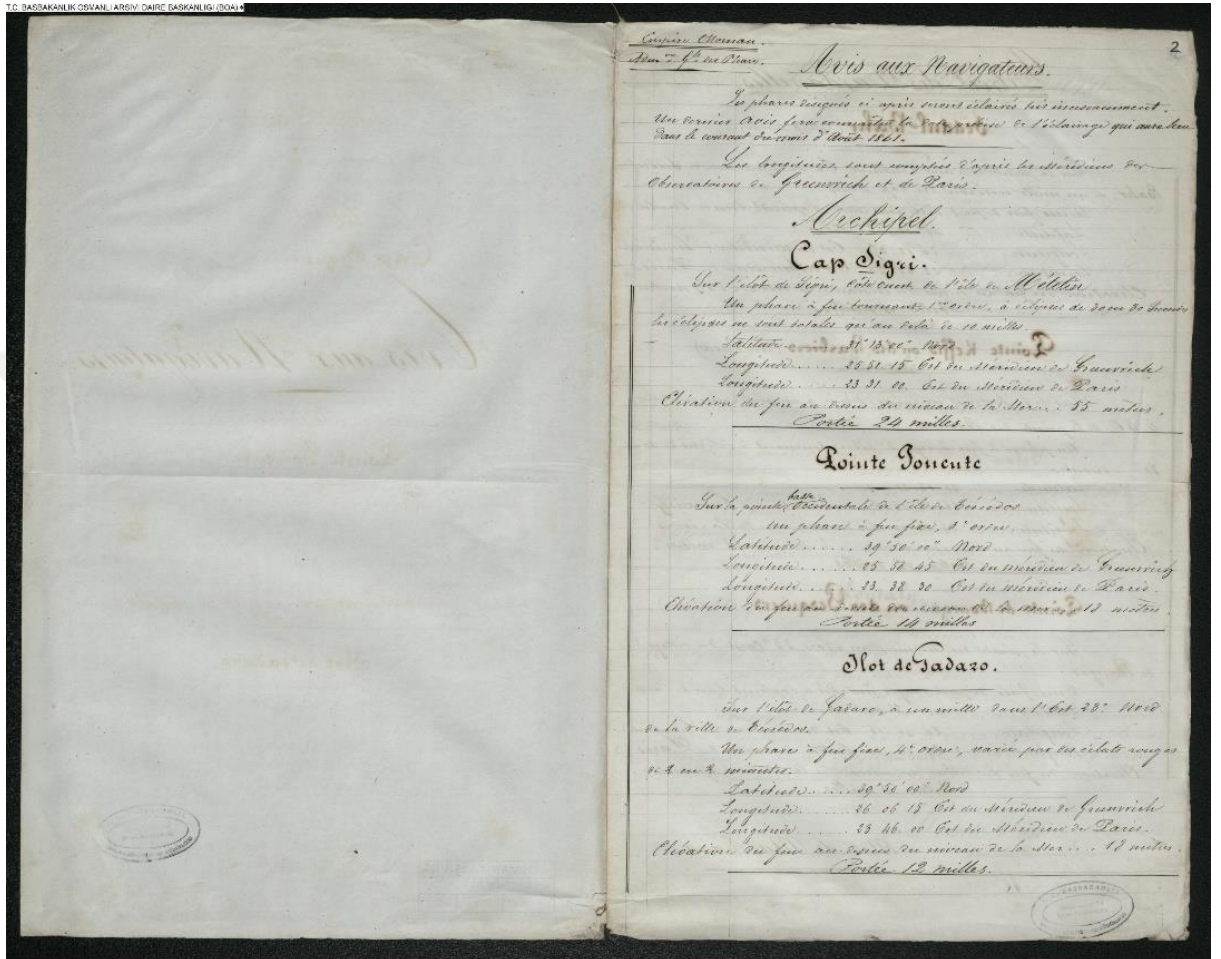 T.C. BASBAKANLIK OSMANLI ARSIVI DAIRE BASKANLIGI (BOA)
2
Empire Ottoman.
Adm.on G.le des Phares.
Avis aux Navigateurs.
Les phares désignés ci après seront éclairés très incessamment.
Un dernier avis fera connaître la date précise de l'éclairage qui aura lieu
dans le courant du mois d'Août 1861.
Les longitudes sont comptées d'après les Méridiens des
Observatoires de Greenwich et de Paris.
Archipel.
Cap Sigri.
Sur l'îlot de Sigri, côte ouest de l'île de Mételin
Un phare à feu tournant, 1er ordre, à éclipses de 30 en 30 secondes
les éclipses ne sont totales qu'au delà de 10 milles.
Latitude Nord
Longitude 25 51 15 Est du Méridien de Greenwich
Longitude 23 31 00 Est du Méridien de Paris
Elévation du feu au dessus du niveau de la Mer 55 mètres.
Portée 24 milles.
Pointe Ponente
Sur la pointe basse Occidentale de l'île de Ténédos
Un phare à feu fixe, ordre,
Latitude 39° 50' 00" Nord
Longitude 25 58 45 Est du méridien de Greenwich
Longitude 23 38 30 Est du méridien de Paris.
Elévation du feu au dessus du niveau de la mer 18 mètres.
Portée 14 milles
Ilot de Gadaro.
Sur l'îlot de Gadaro, à un mille dans l'Est 28° Nord
de la ville de Ténédos.
Un phare à feu fixe, 4e ordre, varié par des éclats rouges
de 2 en 2 minutes.
Latitude 39° 50' 00" Nord
Longitude 26 06 15 Est du Méridien de Greenwich
Longitude 23 46 00 Est du Méridien de Paris.
Elévation du feu au dessus du niveau de la Mer 18 mètres.
Portée 12 milles.